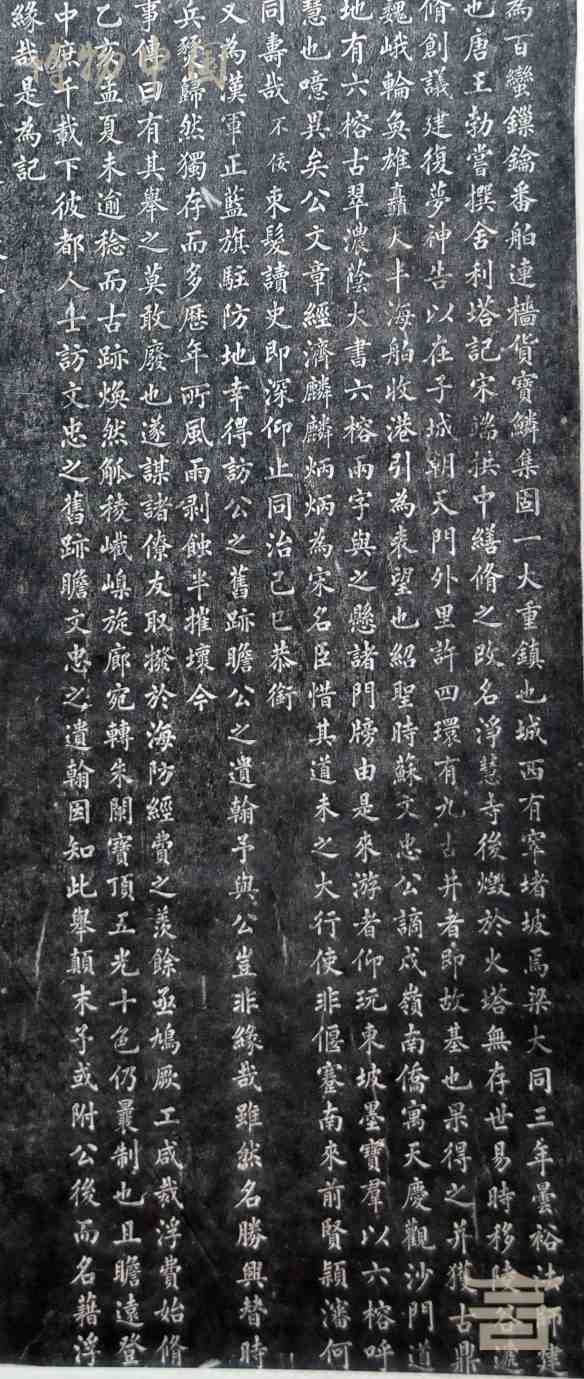 為百蠻鏁鑰番舶連檣貨寶鱗集固一大重鎮也城西有窣堵坡焉梁大同三年曇裕法師建
也唐王勃嘗撰舍利塔記宋端拱中繕脩之改名淨慧寺後燬於火塔無存世易時移陵谷遞
脩創議建復夢神告以在子城朝天門外里許四環有九古井者即故基也果得之并獲古鼎
魏峨輪奐雄矗天半海舶收港引為表望也紹聖時蘇文忠公謫戍嶺南僑寓天慶觀沙門道
地有六榕古翠濃蔭大書六榕兩字與之懸諸門牓由是來游者仰玩東坡墨寶羣以六榕呼
慧也噫異矣公文章經濟麟麟炳炳為宋名臣惜其道未之大行使非偃蹇南來前賢潁瀋何
同壽哉不佞束髮讀史即深仰止同治己巳恭銜
又為漢軍正藍旗駐防地幸得訪公之舊跡瞻公之遺翰予與公豈非緣哉雖然名勝興替時
兵燹歸然獨存而多歷年所風雨剥蝕半摧壞今
事傳曰有其舉之莫敢廢也遂謀諸僚友取撥於海防經費之羨餘亟鳩厥工咸哉浮費始脩
乙亥孟夏未逾稔而古跡煥然觚稜巀嵲旋廊宛轉朱闌寶頂五光十色仍曩制也且瞻遠登
中庶千載下彼都人士訪文忠之舊跡瞻文忠之遺翰因知此舉顛末予或附公後而名藉浮
緣哉是為記